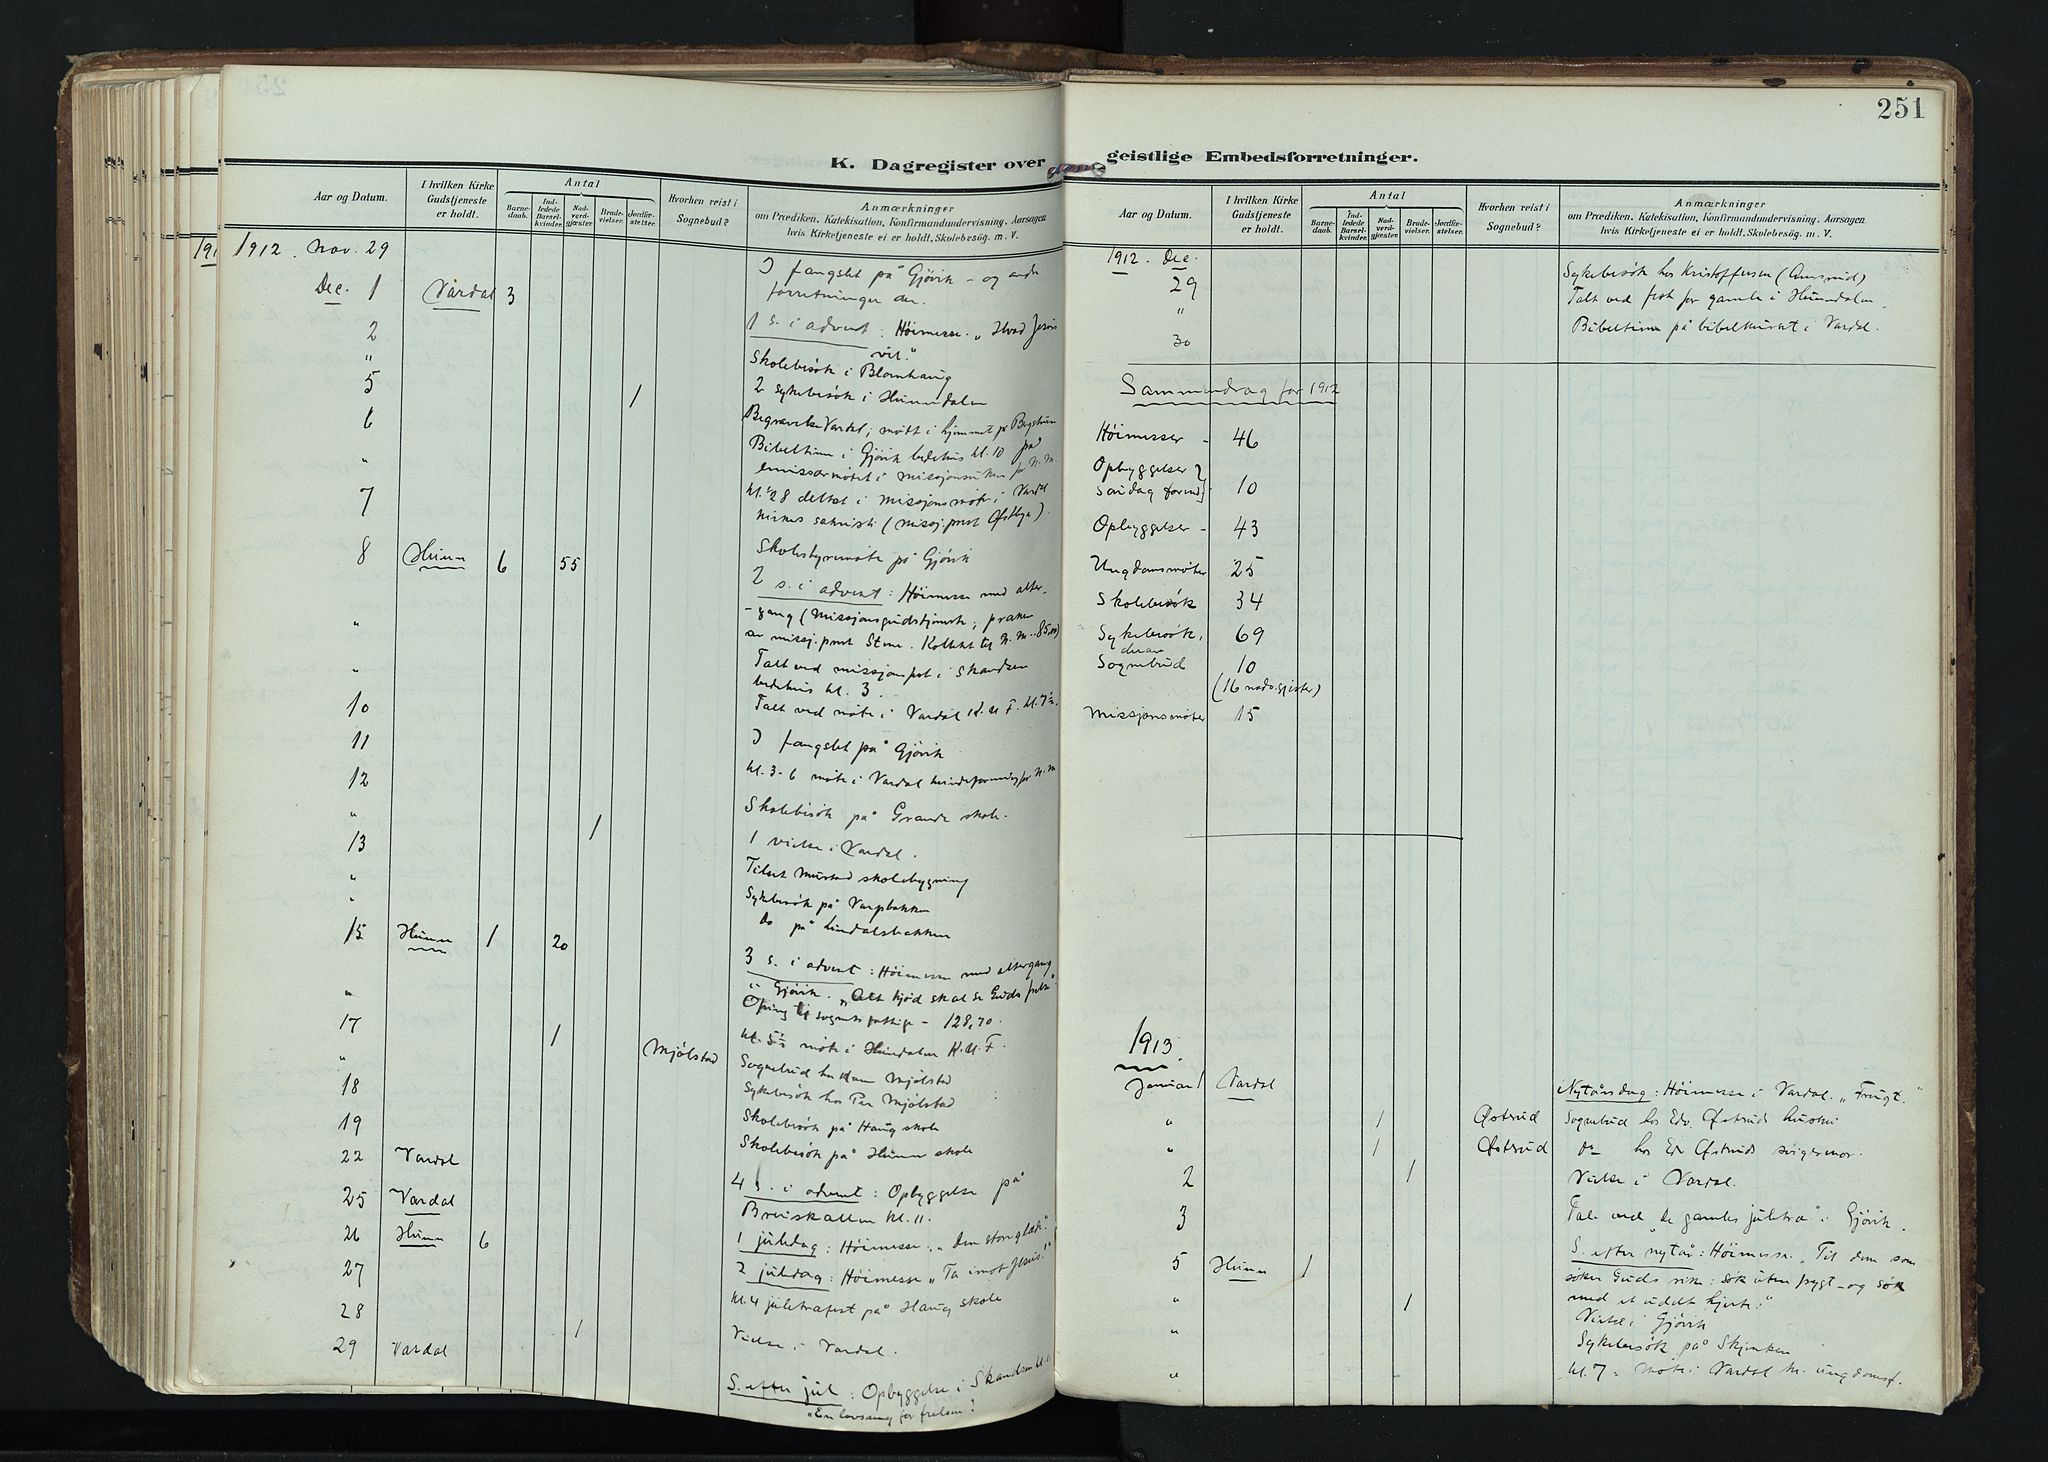 251
K. Dagregister over geistlige Embedsforretninger.
Aar og Datum.
I hvilken Kirke Gudstjeneste er holdt.
Antal
Barnedaab.
Indledede Barselkvinder.
Nadverdgjæster.
Brudevielser.
Jordfæstelser.
Hvorhen reist i Sognebud?
Anmærkninger
om Prædiken, Katekisation, Konfirmandundervisning, Aarsagen
hvis Kirketjeneste ei er holdt, Skolebesøg. m. V.
1912. Nov. 29
I fængslet på Gjøvik - og andre
forretninger der.
Dec. 1 Vardal 3
1 s. i advent: Høimesse. "Hvad Jesus
vil."
2
Skolebesøk i Blomhaug
"
2 sykebesøk i Hunndalen
5 1
Begravelse Vardal; møtt i hjemmet
6
Bibeltime i Gjøvik bedehus kl. 10 på
emissærmøtet i missjonsuken for N.M.
"
kl. ½8 deltat i missjonsmøte i Vardal
kirkes sakristi (missj.prest Østbye).
7
Skolestyremøte på Gjøvik
8 Hunn 6 55
2 s. i advent: Høimesse med alter-
gang (missjonsgudstjeneste; præken
av missj.prest Stene. Kollekt til N.M. 85,00)
"
Talt ved missjonsfest i Skandsen
bedehus kl. 3.
"
Talt ved møte i Vardal K.U.F. kl. 7½.
10
I fængslet på Gjøvik
11
kl. 3-6 møte i Vardal kvindeforening for N.M
12
Skolebesøk på Grande skole.
" 1
1 vielse i Vardal.
13
Tilset Mustad skolebygning
"
Sykebesøk på Varpbakken
"
Do på Lindalsbakken
15 Hunn 1 20
3 s. i advent: Høimesse med altergang
i Gjøvik. "Alt kjød skal se Guds frelse"
Ofring til sognets fattige - 128,70.
"
17
kl. 5½ møte i Hundalen K.U.F.
" 1 Mjølstad
Sognebud hos Mjølstad
Sykebesøk hos Per Mjølstad
18
Skolebesøk på Haug skole
19
Skolebesøk på Hunn skole
22 Vardal
4 s. i advent: Opbyggelse på
Breiskallen kl. 11.
25 Vardal
1 juledag: Høimesse. "Den store glæde."
26 Hunn 6
2 juledag: Høimesse "Ta imot Jesus!"
27
kl. 4 juletræfest på Haug skole
28 1
Vielse i Vardal.
29 Vardal
S. efter jul: Opbyggelse i Skandsen kl. 11
"En lovsang for frelsen!"
Aar og Datum.
I hvilken Kirke Gudstjeneste er holdt.
Antal
Barnedaab.
Indledede Barselkvinder.
Nadverdgjæster.
Brudevielser.
Jordfæstelser.
Hvorhen reist i Sognebud?
Anmærkninger
om Prædiken, Katekisation, Konfirmandundervisning, Aarsagen
hvis Kirketjeneste ei er holdt, Skolebesøg. m. V.
1912. Dec.
29 Sykebesøk hos Kristoffersen (Amsrud)
" Talt ved fest for gamle i Hunndalen.
30 Bibeltime på bibelkurset i Vardal.
Sammendrag for 1912
Høimesser - 46
Opbyggelser
søndag form. 10
Opbyggelser - 43
Ungdomsmøter 25
Skolebesøk 34
Sykebesøk, 69
derav
Sognebud 10
(16 nadv.gjester)
Missjonsmøter 15
1913.
Januar 1 Vardal Nytårsdag: Høimesse i Vardal. "Frygt."
" 1 Østrud Sognebud hos Edv. Østruds hustru
" 1 Østrud do hos Edv Østruds svigermor.
2 1 Vielse i Vardal.
3 Tale ved "De gamles juletræ" i Gjøvik.
5 Hunn 1 S. efter nytår: Høimesse. "Til dem som
søker Guds rike: søk uten frygt - og søk
med et udelt hjerte."
" 1 Vielse i Gjøvik
" Sykebesøk på Skjerken
" kl. 7 møte i Vardal kr. ungdomsf.